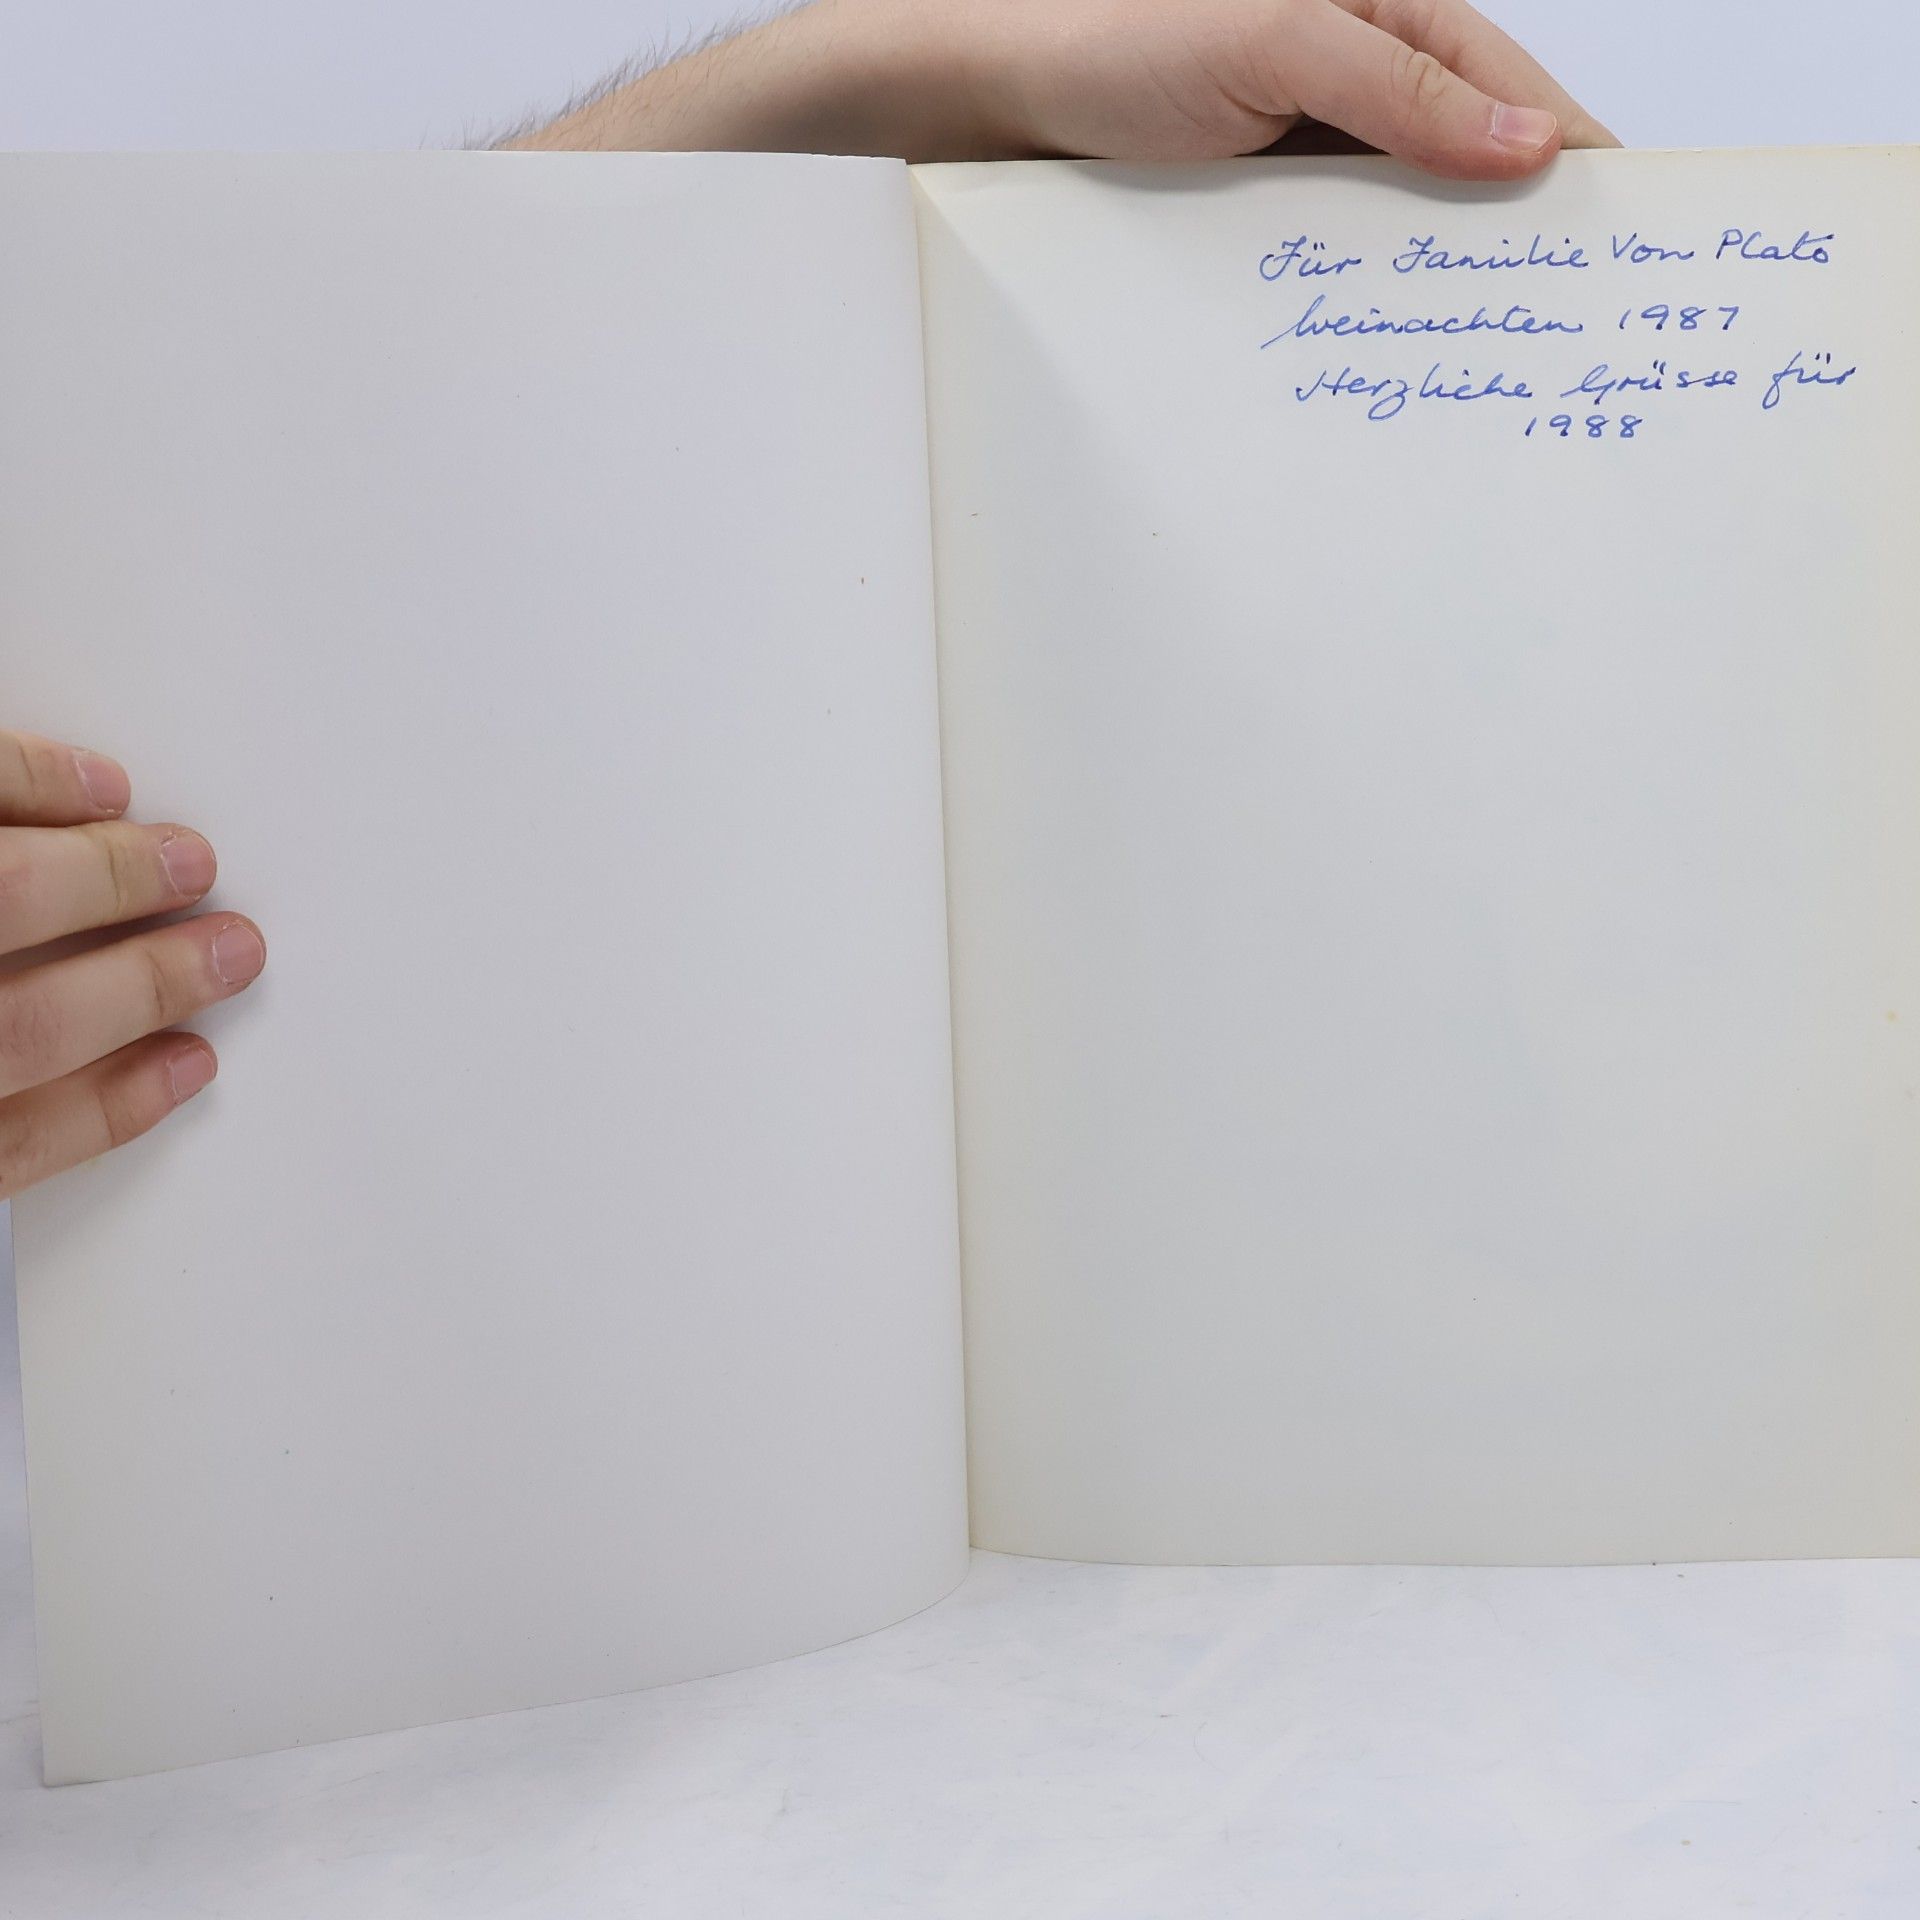 Für Familie Von Plato
Weinachten 1987
Herzliche Grüsse für
1988